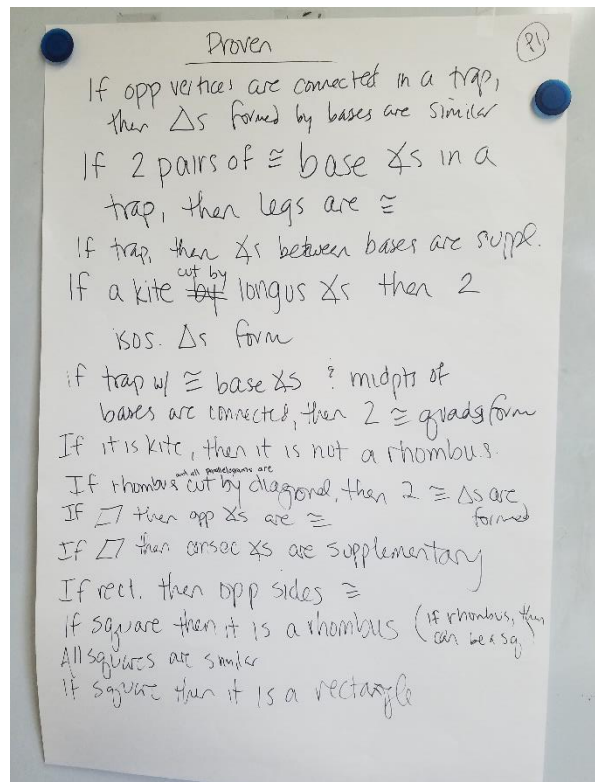 Proven
P1
If opp vertices are connected in a trap,
then △s formed by bases are similar
If 2 pairs of ≅ base ∡s in a
trap, then legs are ≅
If trap, then ∡s between bases are suppl.
cut by
If a kite longus ∡s then 2
isos. △s form
if trap w/ ≅ base ∡s & midpts of
bases are connected, then 2 ≅ quads form
If it is kite, then it is not a rhombus.
and all parallelograms are
If rhombus cut by diagonal, then 2 ≅ △s are
formed
If ▱ then opp ∡s are ≅
If ▱ then consec ∡s are supplementary
If rect. then opp sides ≅
if square then it is a rhombus (if rhombus, then
can be a sq
All squares are similar
If square then it is a rectangle